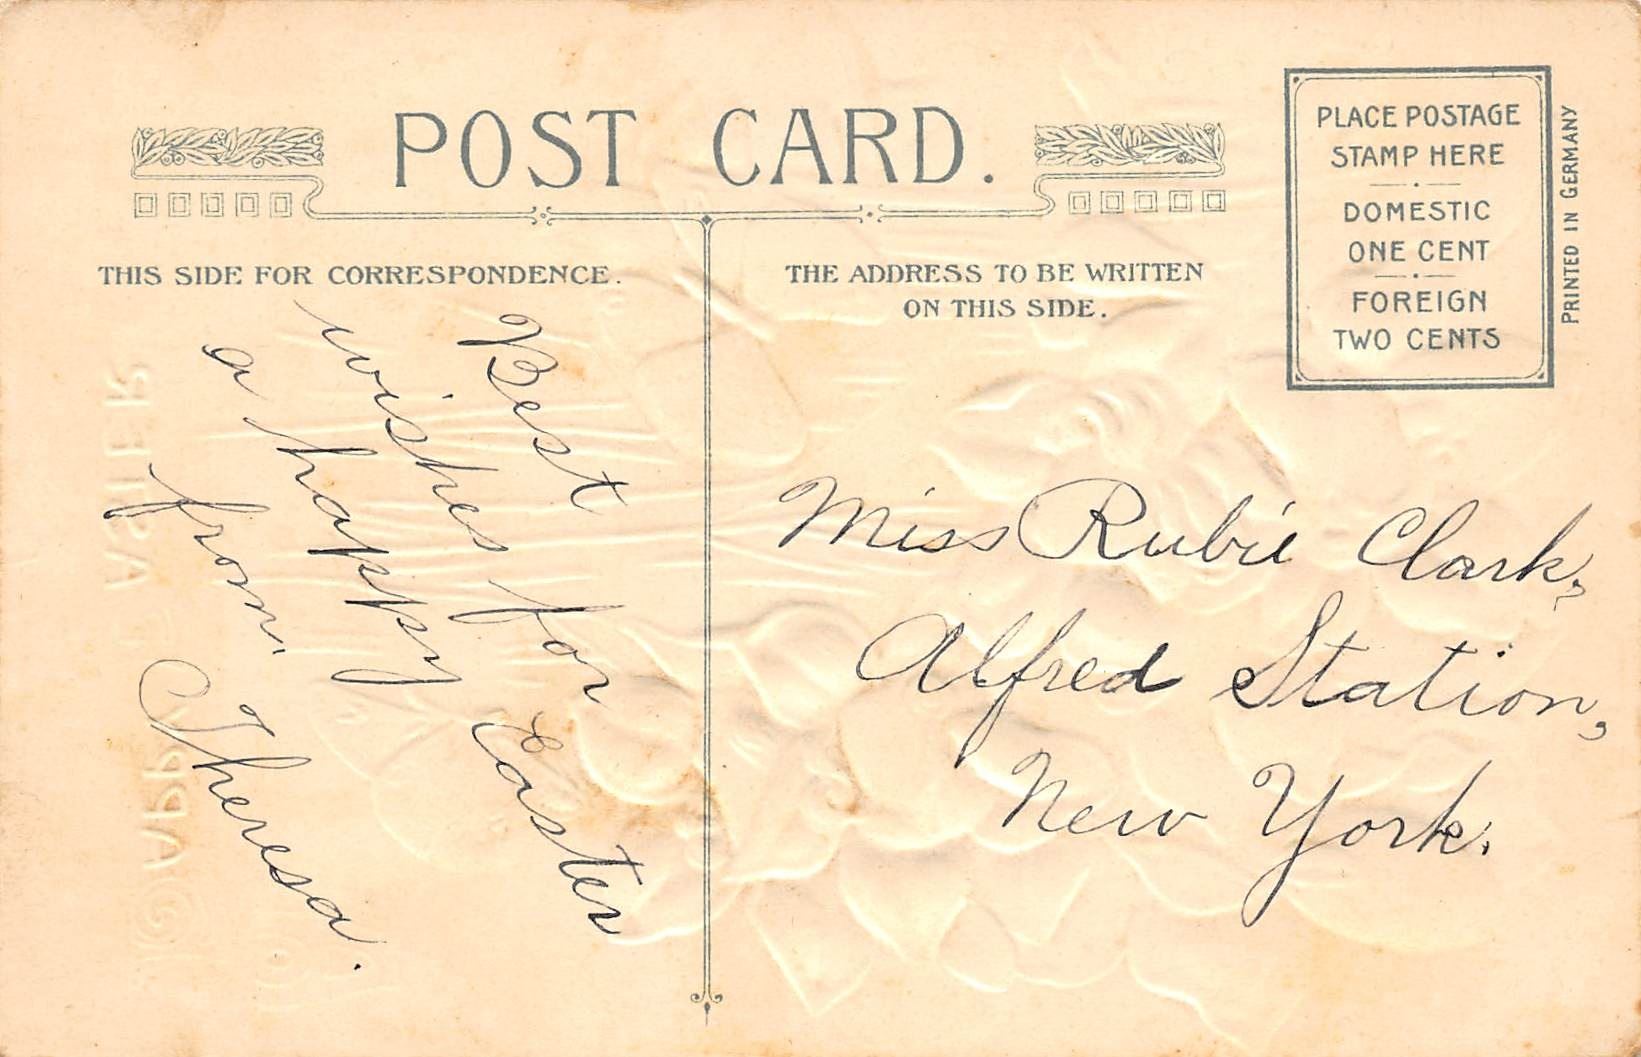 POST CARD.
THIS SIDE FOR CORRESPONDENCE.
THE ADDRESS TO BE WRITTEN
ON THIS SIDE.
PLACE POSTAGE
STAMP HERE
DOMESTIC
ONE CENT
FOREIGN
TWO CENTS
PRINTED IN GERMANY
Best
wishes for Easter
a happy
from Theresa.
Miss Rubie Clark,
Alfred Station,
New York.
A HAPPY EASTER